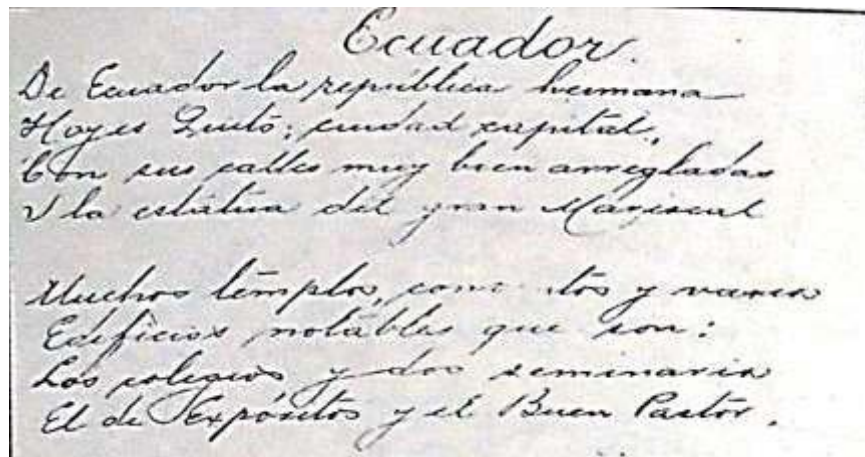 Ecuador.
De Ecuador la república hermana
Hoy es Quito; ciudad capital,
Con sus calles muy bien arregladas
I la estatua del gran Mariscal
Muchos templos, conventos y varios
Edificios notables que son:
Los colegios y dos seminarios
El de Expósitos y el Buen Pastor.